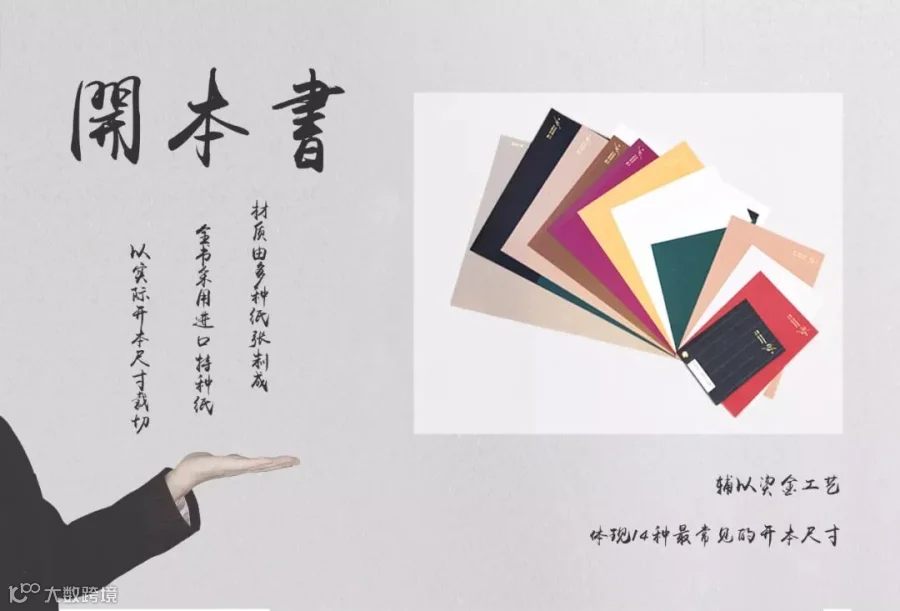 開本書
材质由多种纸张制成
全书采用进口特种纸
以实际开本尺寸裁切
辅以烫金工艺
体现14种最常见的开本尺寸
大数跨境